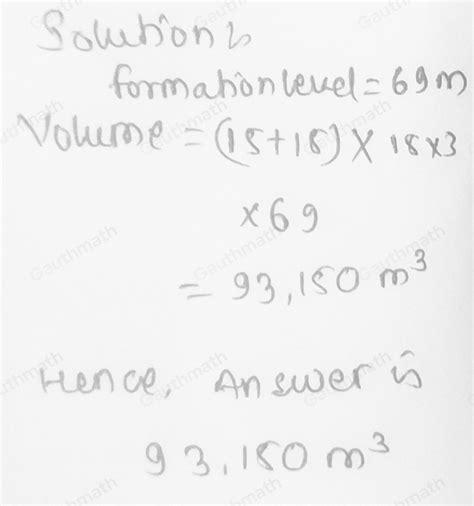 Solution:
formation level = 69m
Volume = (15+15) × 15×3
×69
= 93,150 m³
Hence, Answer is
93,150 m³